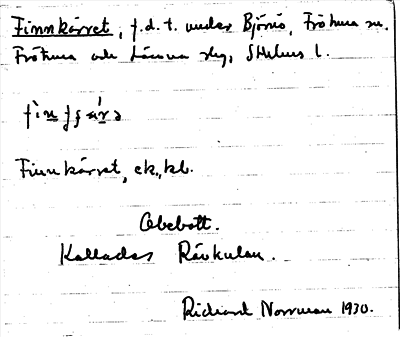 Finnkärret, f.d. t. under Björnö, Frötuna sn.
Frötuna och Länna skg, Sthlms l.
Finnkärret, ek., kb.
Obebott.
Kallades Rävkulan.
Richard Norrman 1930.